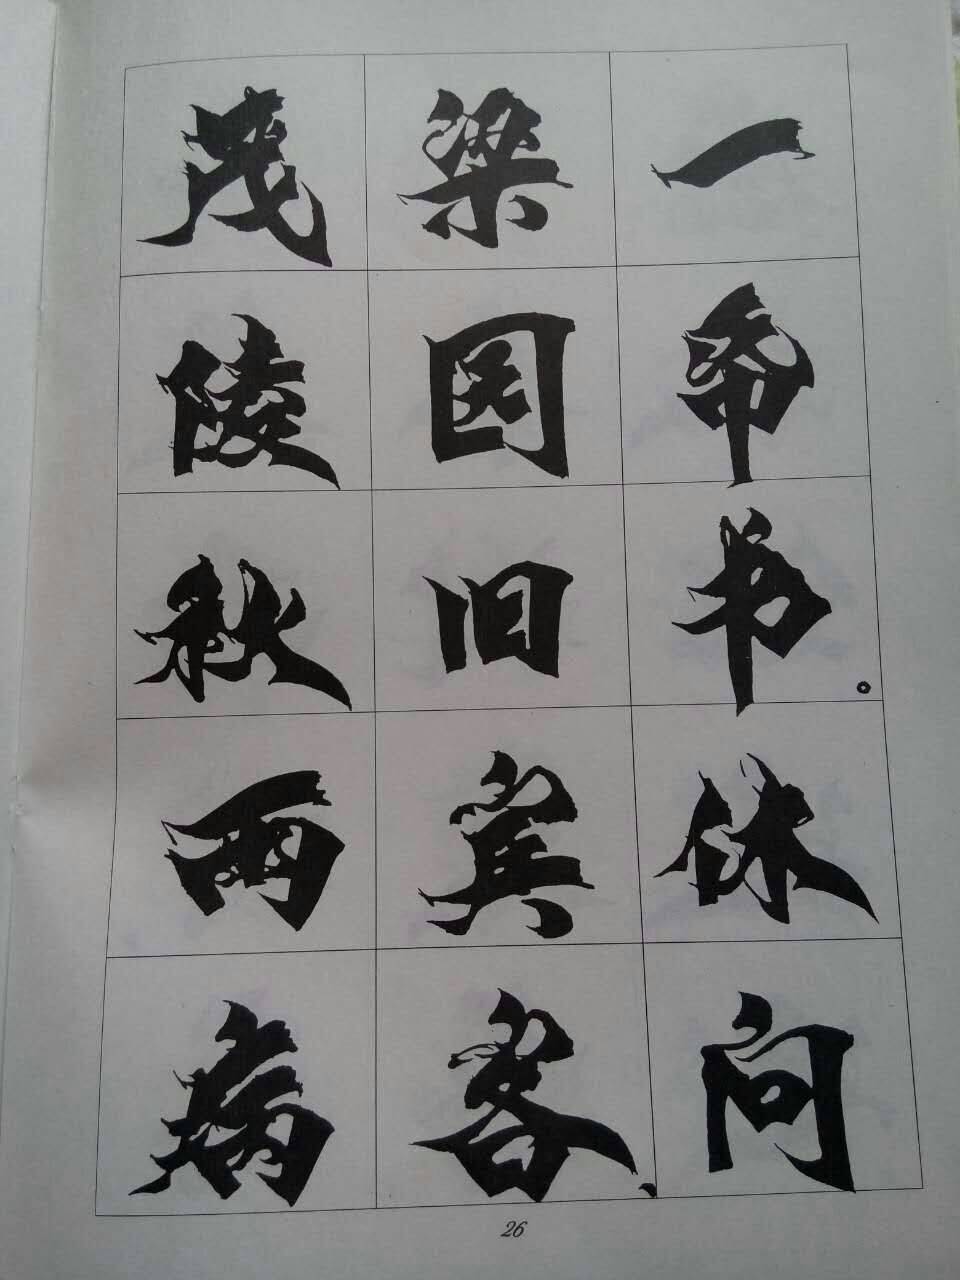 一帝书。休问
梁园旧宾客、
茂陵秋雨病
26